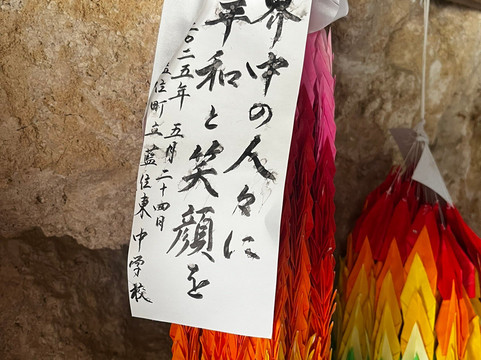 界中の人々に
平和と笑顔を
二〇二五年 五月二十四日
住町立藍住東中学校